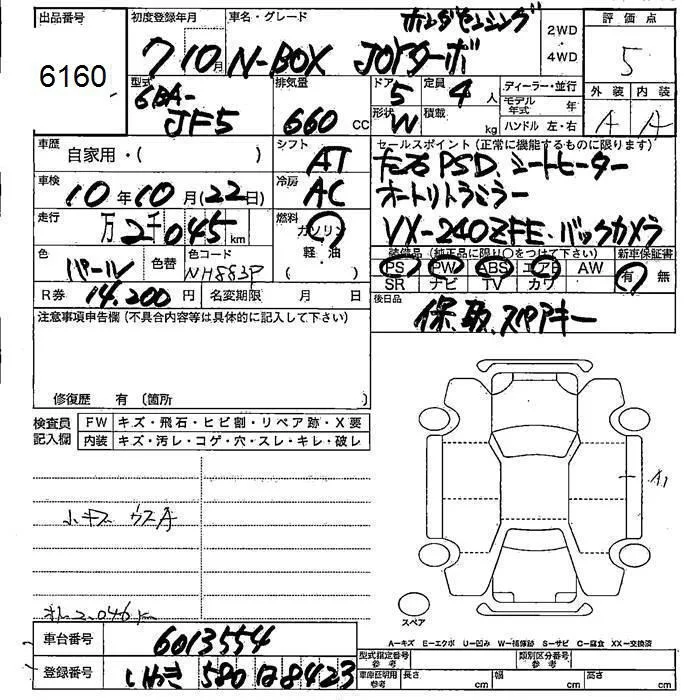 出品番号 6160
初度登録年月 7 10月
車名・グレード ホンダセンシング
N-BOX JOYターボ
2WD
4WD
評価点 5
外装 内装
A A
型式 6BA-
JF5
排気量 660 cc
ドア 5
形状 W
定員 4 人
積載 kg
ディーラー・並行
モデル年式 年
ハンドル 左・右
車歴 自家用・( )
シフト AT
セールスポイント(正常に機能するものに限ります)
PSD、シートヒーター
オートリトラミラー
VX-240ZFE、バックカメラ
車検 10年10月(22日)
冷房 AC
走行 万2千045km
燃料 ガソリン
軽油
( )
色 パール 色替
色コード NH883P
装備品(純正品に限り○をつけて下さい)
PS PW ABS エアB AW
SR ナビ TV カワ
新車保証書
有 無
R券 14,200円
名変期限 月 日
後日品
保、取、スペアキー
注意事項申告欄(不具合内容等は具体的に記入して下さい)
修復歴 有 〔箇所 〕
検査員記入欄
FW キズ・飛石・ヒビ割・リペア跡・X要
内装 キズ・汚レ・コゲ・穴・スレ・キレ・破レ
A1
2,046km
スペア
A-キズ E-エクボ U-凹み W-補修跡 S-サビ C-腐食 XX-交換済
車台番号 6013554
登録番号 いわき 580 は 8423
型式指定番号 参考
類別区分番号 参考
車庫証明用 参考 長さ cm 幅 cm 高さ cm